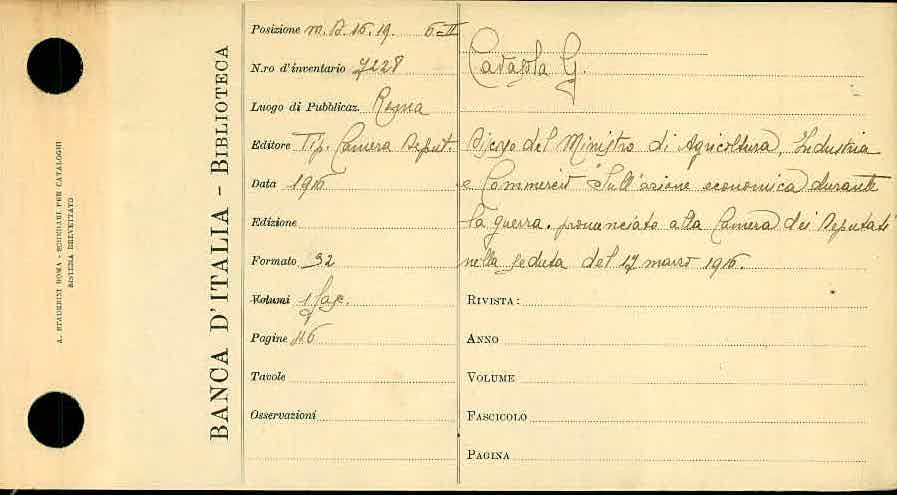 A. STADERINI ROMA - SCHEDARI PER CATALOGHI
SISTEMA BREVETTATO
BANCA D'ITALIA - BIBLIOTECA
Posizione m. B. 15. 19. 6=II
N.ro d'inventario 7228
Luogo di Pubblicaz. Roma
Editore Tip. Camera Deput.
Data 1916
Edizione
Formato 32
Volumi 1 fasc.
Pagine 46
Tavole
Osservazioni
Cavasola G.
Discorso del Ministro di Agricoltura, Industria
e Commercio "Sull'azione economica durante
la guerra. pronunciato alla Camera dei Deputati
nella seduta del 17 marzo 1916.
RIVISTA:
ANNO
VOLUME
FASCICOLO
PAGINA